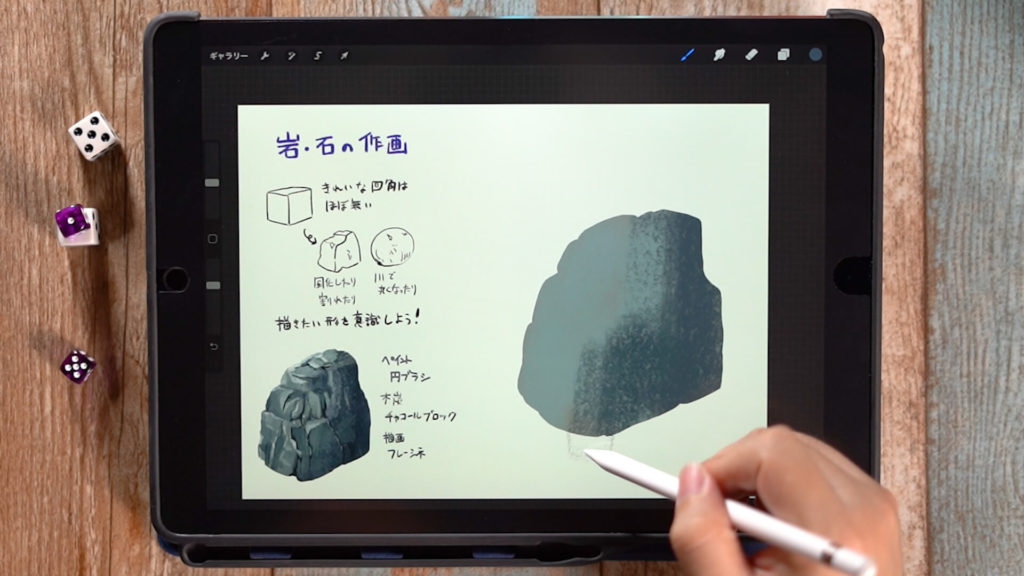 ギャラリー
岩・石の作画
きれいな四角は
ほぼ無い
風化したり
割れたり
川で
丸くなったり
描きたい形を意識しよう!
ペイント
円ブラシ
木炭
チャコールブロック
描画
フレーシネ